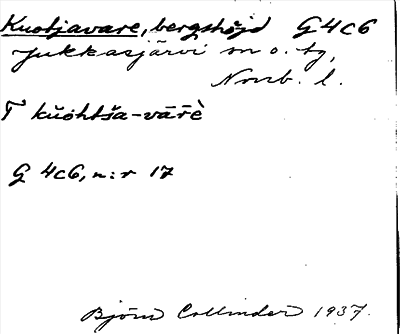 Kuotjavare, bergshöjd G4c6
Jukkasjärvi sn o. tg,
Norrb. l.
T kŭohtša-vārḕ
G 4c6, n:r 17
Björn Collinder 1937.